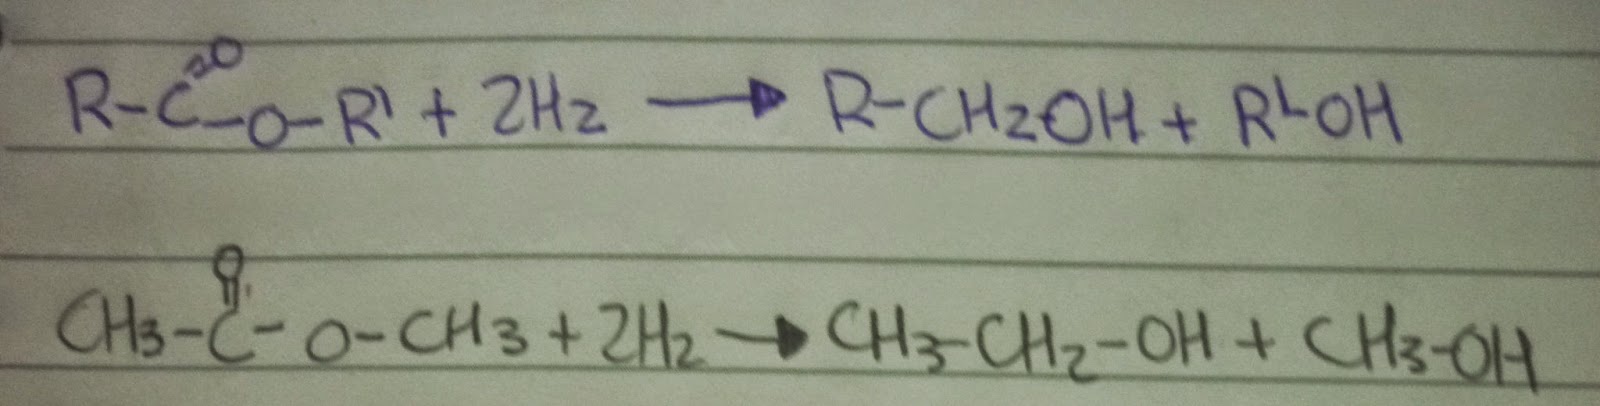 R-C=O-O-R' + 2H2 → R-CH2OH + R'-OH
CH3-C=O-O-CH3 + 2H2 → CH3-CH2-OH + CH3-OH